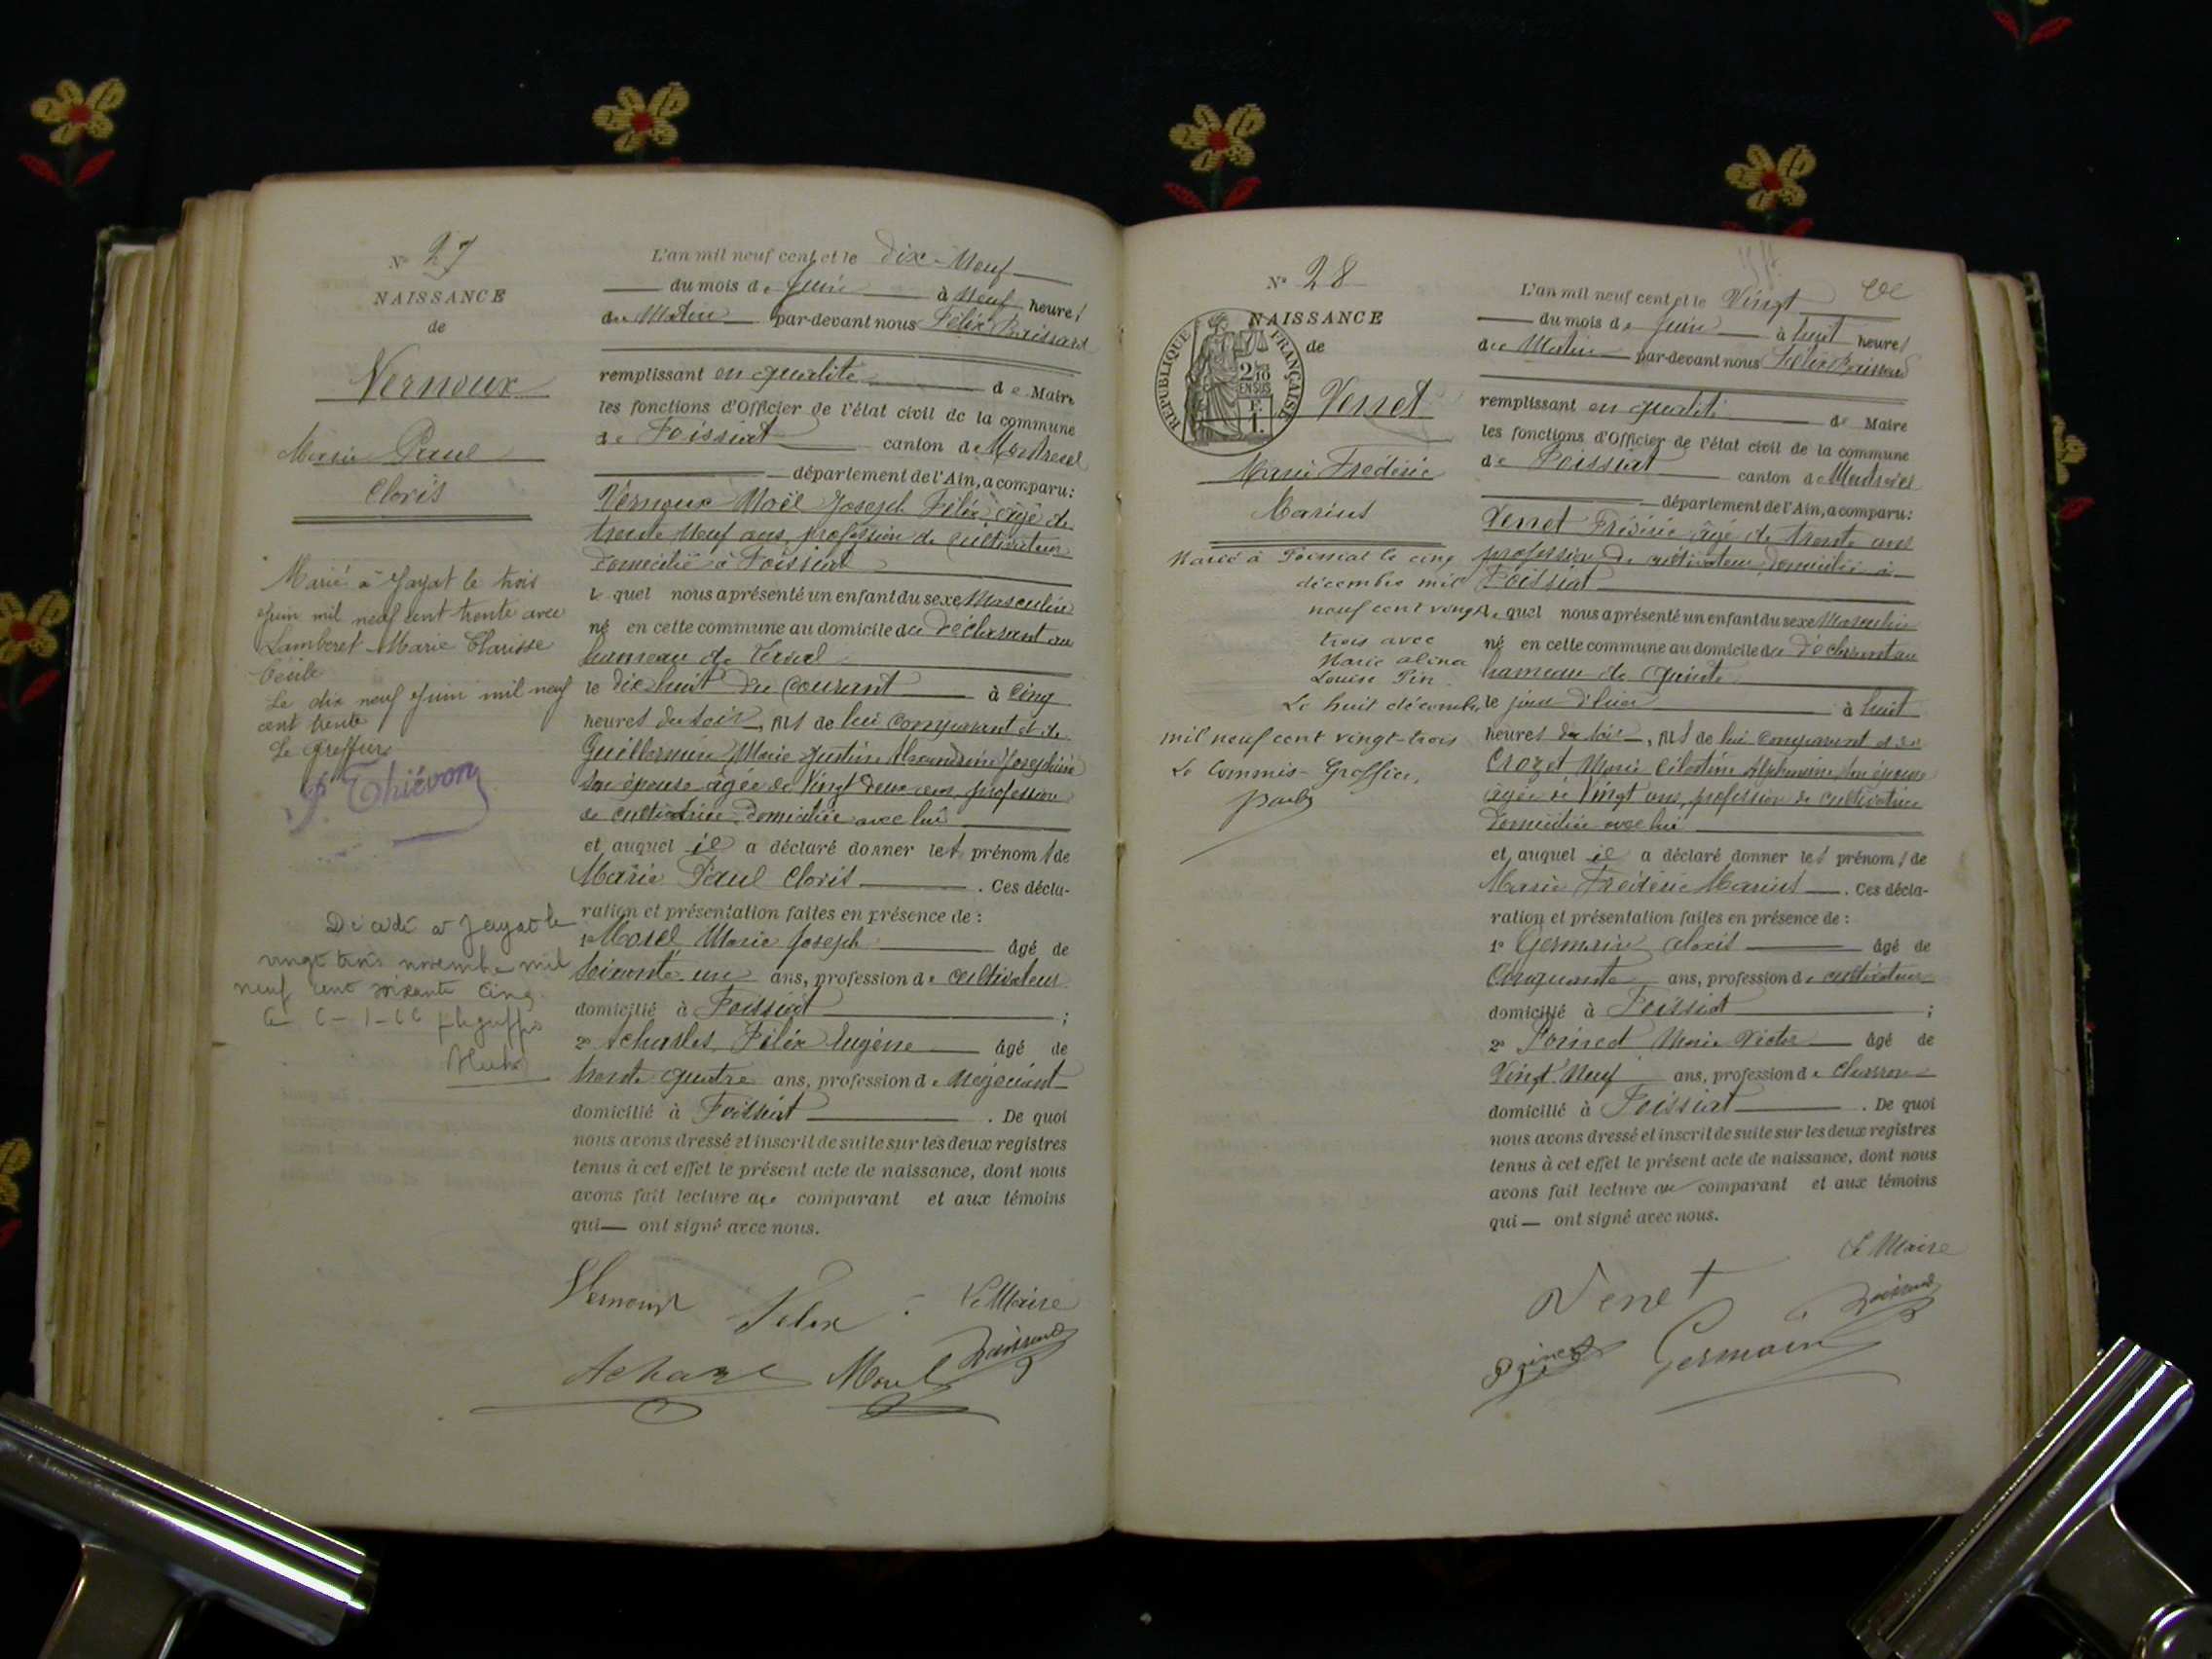 N° 27
NAISSANCE
de
Vernoux
Marie Paul
Cloris
Marié à Jayat le trois
Juin mil neuf cent trente avec
Lamberet Marie Clarisse
Cécile
Le dix neuf Juin mil neuf
cent trente
Le Greffier
P. Thiévon
Décédé à Jayat le
vingt trois novembre mil
neuf cent soixante cinq
L'an mil neuf cent et le Dix-Neuf
du mois de Juin à Neuf heures
du Matin par-devant nous Félix
remplissant en qualité de Maire
les fonctions d'Officier de l'état civil de la commune
de Foissiat canton de Montrevel
département de l'Ain, a comparu :
Vernoux Noël Joseph Félix âgé de
trente Neuf ans, profession de cultivateur
Domicilié à Foissiat
le quel nous a présenté un enfant du sexe Masculin
né en cette commune au domicile du Déclarant au
hameau de
le dix huit du Courant à Cinq
heures du soir, fils de lui Comparant et de
Guillermin Marie Justine Alexandrine Joséphine
Son épouse âgée de Vingt Deux ans, profession
de cultivatrice, Domiciliée avec lui
et auquel il a déclaré donner les prénoms de
Marie Paul Cloris . Ces décla-
ration et présentation faites en présence de :
1° Morel Marie Joseph âgé de
Soixante un ans, profession de cultivateur
domicilié à Foissiat ;
2° Acharles Félix Eugène âgé de
trente quatre ans, profession de Négociant
domicilié à Foissiat . De quoi
nous avons dressé et inscrit de suite sur les deux registres
tenus à cet effet le présent acte de naissance, dont nous
avons fait lecture au comparant et aux témoins
qui ont signé avec nous.
Vernoux Félix Le Maire
Acharl Morel
N° 28
NAISSANCE
de
RÉPUBLIQUE FRANÇAISE
2/10
EN SUS
Venet
Marie Frédéric
Marius
Marié à Foissiat le cinq
décembre mil
neuf cent vingt
trois avec
Marie Alina
Louise Pin
Le huit décembre
mil neuf cent vingt-trois
Le Commis-Greffier,
L'an mil neuf cent et le Vingt
du mois de Juin à huit heures
du Matin par-devant nous Félix
remplissant en qualité de Maire
les fonctions d'Officier de l'état civil de la commune
de Foissiat canton de Montrevel
département de l'Ain, a comparu :
Venet Frédéric âgé de trente ans
profession de cultivateur, domicilié à
Foissiat
le quel nous a présenté un enfant du sexe Masculin
né en cette commune au domicile du Déclarant au
hameau de
le jour d'hier à huit
heures du soir, fils de lui Comparant et de
Crozet Marie Célestine Alphonsine, son épouse
âgée de Vingt ans, profession de Cultivatrice
Domiciliée avec lui
et auquel il a déclaré donner les prénoms de
Marie Frédéric Marius . Ces décla-
ration et présentation faites en présence de :
1° Germain Alexis âgé de
Cinquante ans, profession de cultivateur
domicilié à Foissiat ;
2° Poincet Marie Victor âgé de
Vingt Neuf ans, profession de
domicilié à Foissiat . De quoi
nous avons dressé et inscrit de suite sur les deux registres
tenus à cet effet le présent acte de naissance, dont nous
avons fait lecture au comparant et aux témoins
qui ont signé avec nous.
Le Maire
Venet
Germain